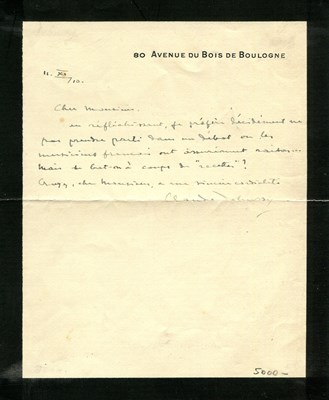 80 AVENUE DU BOIS DE BOULOGNE
11. XII/10.
Cher Monsieur,
en réfléchissant, je préfère décidément ne
pas prendre parti dans un débat où les
musiciens français ont sûrement raison.
Mais se bat-on à coups de "recettes"?
Croyez, cher Monsieur, à ma sincère cordialité
Claude Debussy
5000-